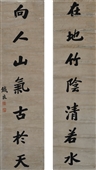 在地竹陰清若水
向人山氣古於天